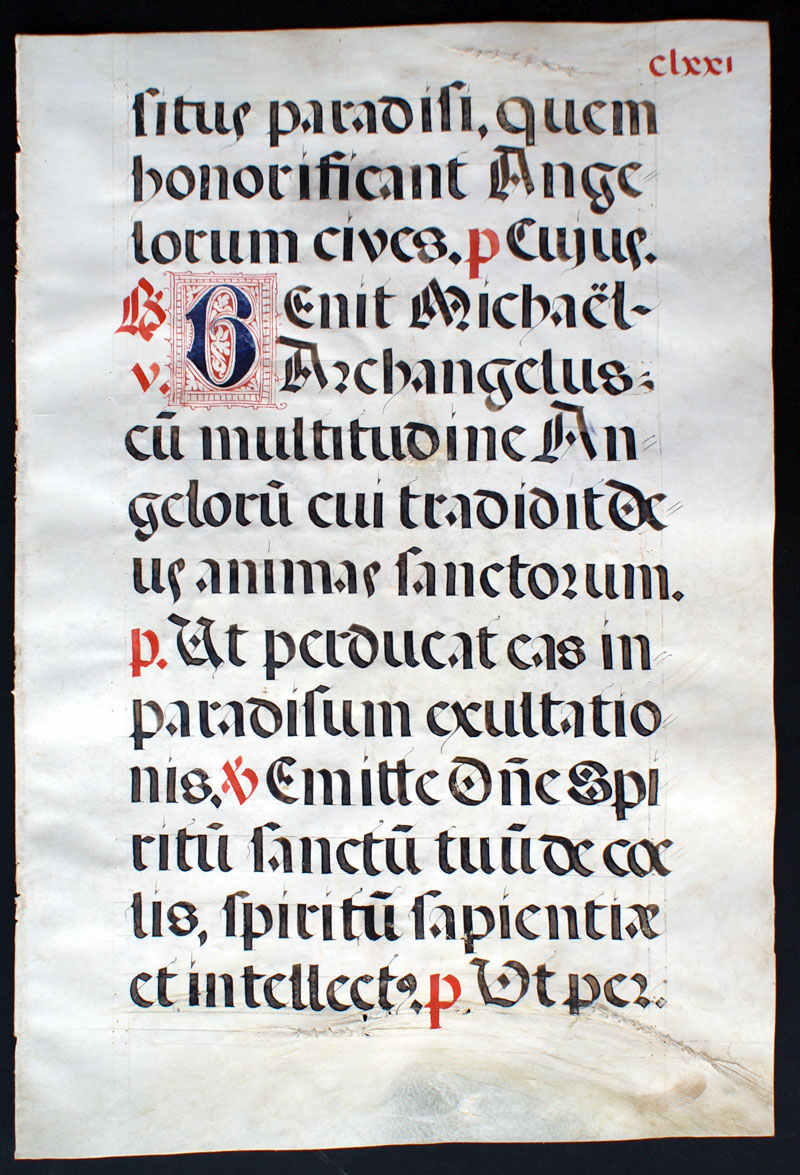 clxxi
ſitus paradiſi, quem
honorificant Ange=
lorum cives. p Cujus.
℟ Venit Michaël-
v. Archangelus
cū multitudine An=
gelorū cui tradidit De=
us animas ſanctorum.
p. Ut perducat eas in
paradiſum exultatio
nis. ℣ Emitte Dñe Spi
ritū ſanctū tuū de cœ=
lis, ſpiritū ſapientiæ
et intellectꝰ. p Ut per.